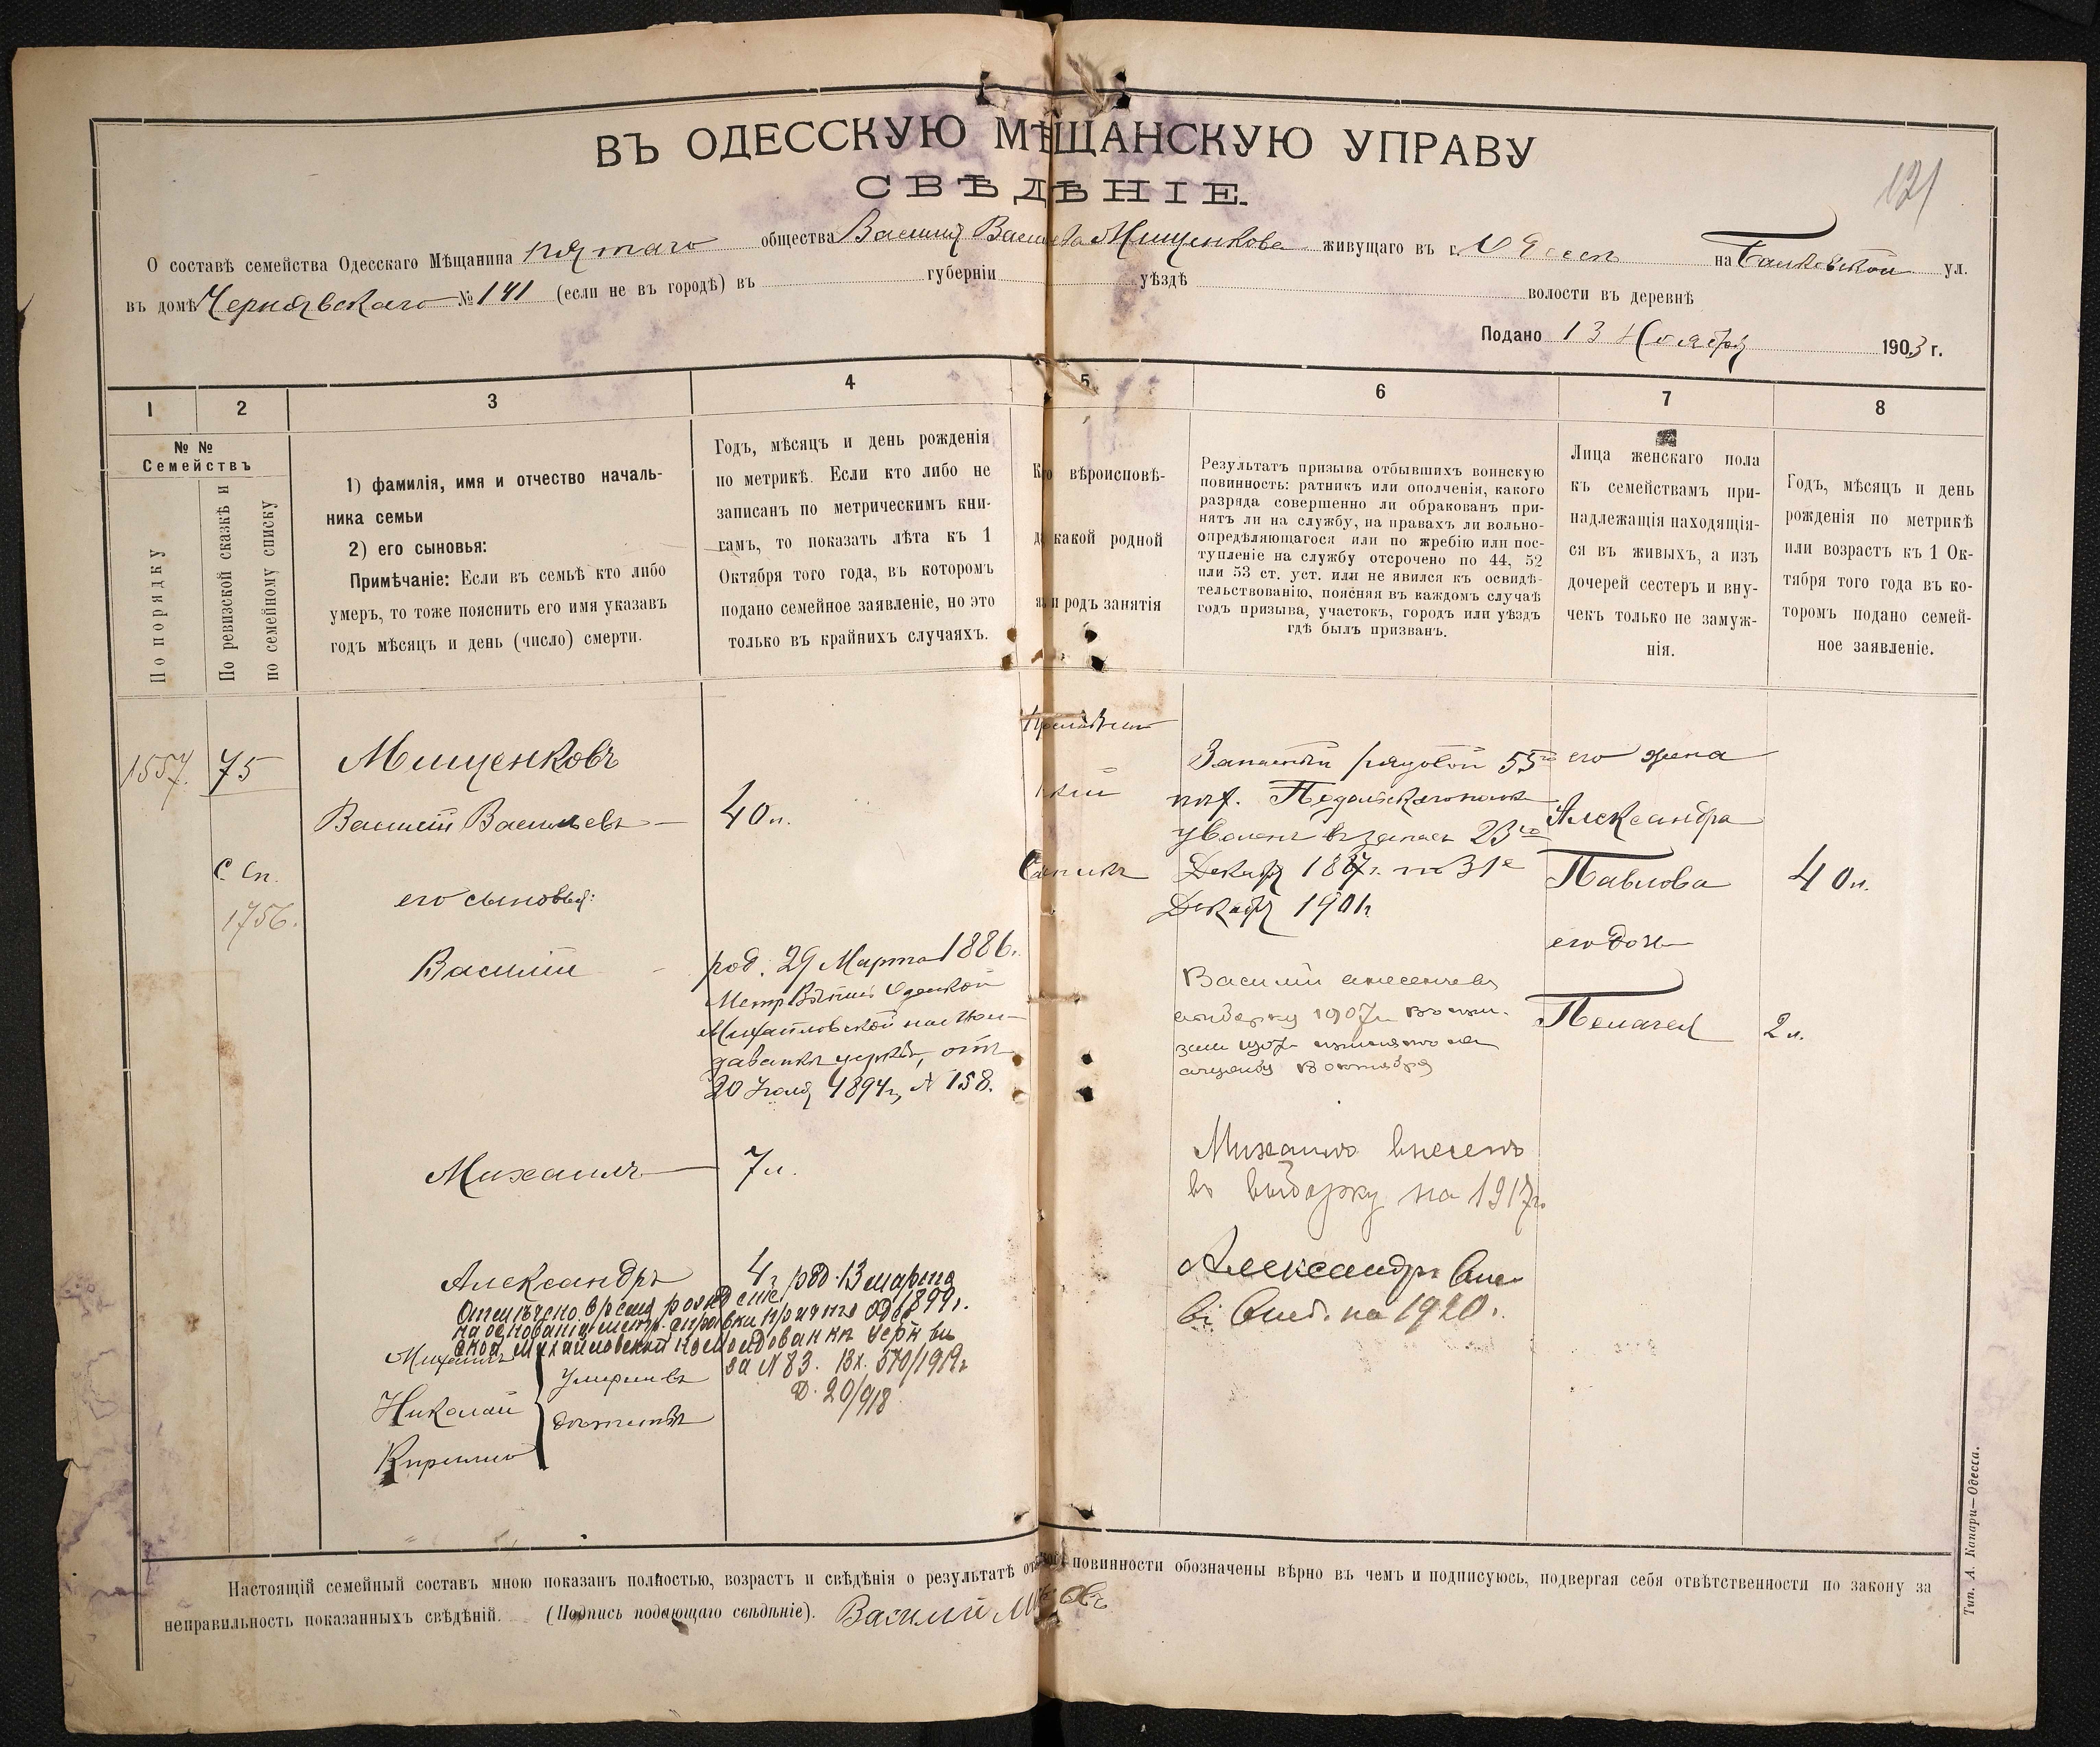 ВЪ ОДЕССКУЮ МѢЩАНСКУЮ УПРАВУ
СВѢДѢНІЕ.
121
О составѣ семейства Одесскаго Мѣщанина пятаго общества Василія Васильева Мищенкова живущаго въ г. Одессѣ на Балковской ул.
въ домѣ Чернявскаго № 141 (если не въ городѣ) въ губерніи уѣздѣ волости въ деревнѣ
Подано 13 Ноября 1903 г.
1 2 3 4 5 6 7 8
№ №
Семействъ
По порядку
По ревизской сказкѣ и
по семейному списку
1) фамилія, имя и отчество началь-
ника семьи
2) его сыновья:
Примѣчаніе: Если въ семьѣ кто либо
умеръ, то тоже пояснить его имя указавъ
годъ мѣсяцъ и день (число) смерти.
Годъ, мѣсяцъ и день рожденія
по метрикѣ. Если кто либо не
записанъ по метрическимъ кни-
гамъ, то показать лѣта къ 1
Октября того года, въ которомъ
подано семейное заявленіе, но это
только въ крайнихъ случаяхъ.
вѣроисповѣ-
какой родной
и родъ занятія
Результатъ призыва отбывшихъ воинскую
повинность: ратникъ или ополченія, какого
разряда совершенно ли обракованъ при-
нятъ ли на службу, на правахъ ли вольно-
опредѣляющагося или по жребію или пос-
тупленіе на службу отсрочено по 44, 52
или 53 ст. уст. или не явился къ освидѣ-
тельствованію, поясняя въ каждомъ случаѣ
годъ призыва, участокъ, городъ или уѣздъ
гдѣ былъ призванъ.
Лица женскаго пола
къ семействамъ при-
надлежащія находящія-
ся въ живыхъ, а изъ
дочерей сестеръ и вну-
чекъ только не замуж-
нія.
Годъ, мѣсяцъ и день
рожденія по метрикѣ
или возрастъ къ 1 Ок-
тября того года въ ко-
торомъ подано семей-
ное заявленіе.
1557. 75
С. Сп.
1756.
Мищенковъ
Василій Васильевъ — 40 л.
его сыновья:
Василій - род. 29 Марта 1886.
Метр Выпись Одесской
Михайловской на Мол-
даванкѣ церкви, отъ
20 Іюля 1894 г, № 158.
Михаилъ — 7 л.
Александръ 4 г. род. 13 марта 1899 г.
Отмѣчено время рожденія
на основаніи метр. справки причта Одес
ской Михайловской на Молдованкѣ церкви
за № 83. Вх. 570/1919 г
Д. 20/918
Михаилъ
Николай
Кирилло
Умерли въ
дѣтствѣ
Запасный рядовой 55го
пѣх. Подольскаго полка
уволенъ въ запасъ 23го
Декабря 1887 г. по 31е
Декабря 1901 г.
Василій внесенъ въ
выборку 1907 г.
службу 13 октября
Михаилъ внесенъ
въ выборку на 1917 г.
Александръ Внес
въ Выб. на 1920 г.
его жена
Александра
Павлова 40 л.
его дочь
Пелагея 2 л.
Настоящій семейный составъ мною показанъ полностью, возрастъ и свѣдѣнія о результатѣ повинности обозначены вѣрно въ чемъ и подписуюсь, подвергая себя отвѣтственности по закону за
неправильность показанныхъ свѣдѣній. (Подпись подающаго свѣдѣніе). Василий
Тип. А. Капари—Одесса.